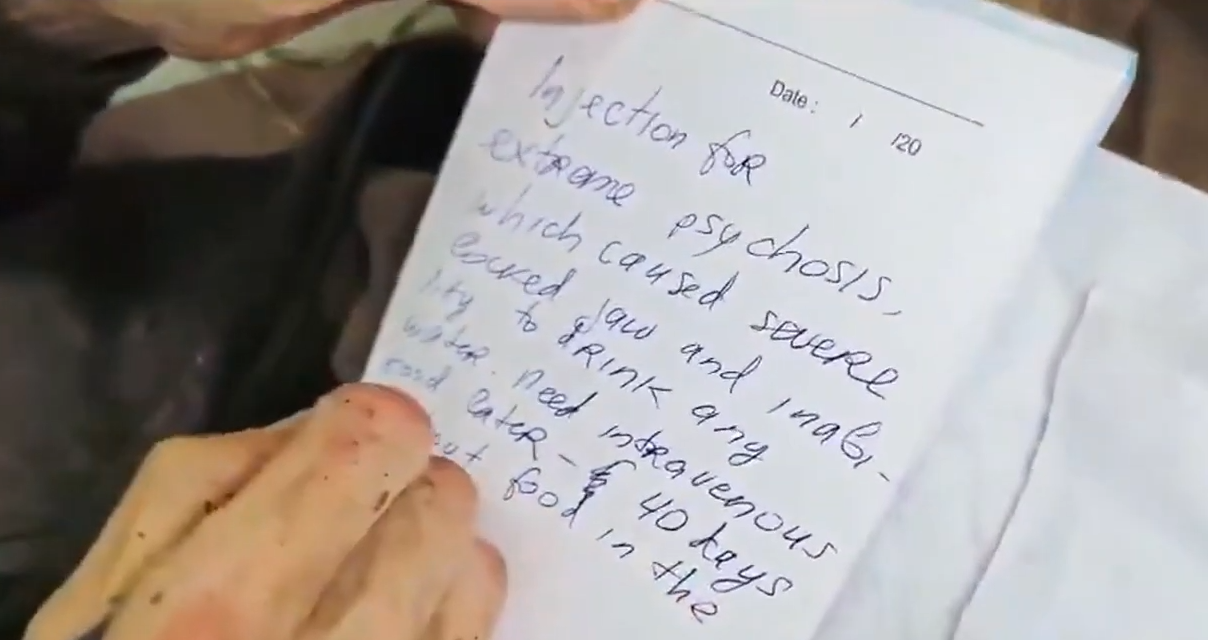 Date: / /20
Injection for
extreme psychosis,
which caused severe
locked jaw and inabi-
lity to drink any
water. Need intravenous
food later - 40 days
out food in the